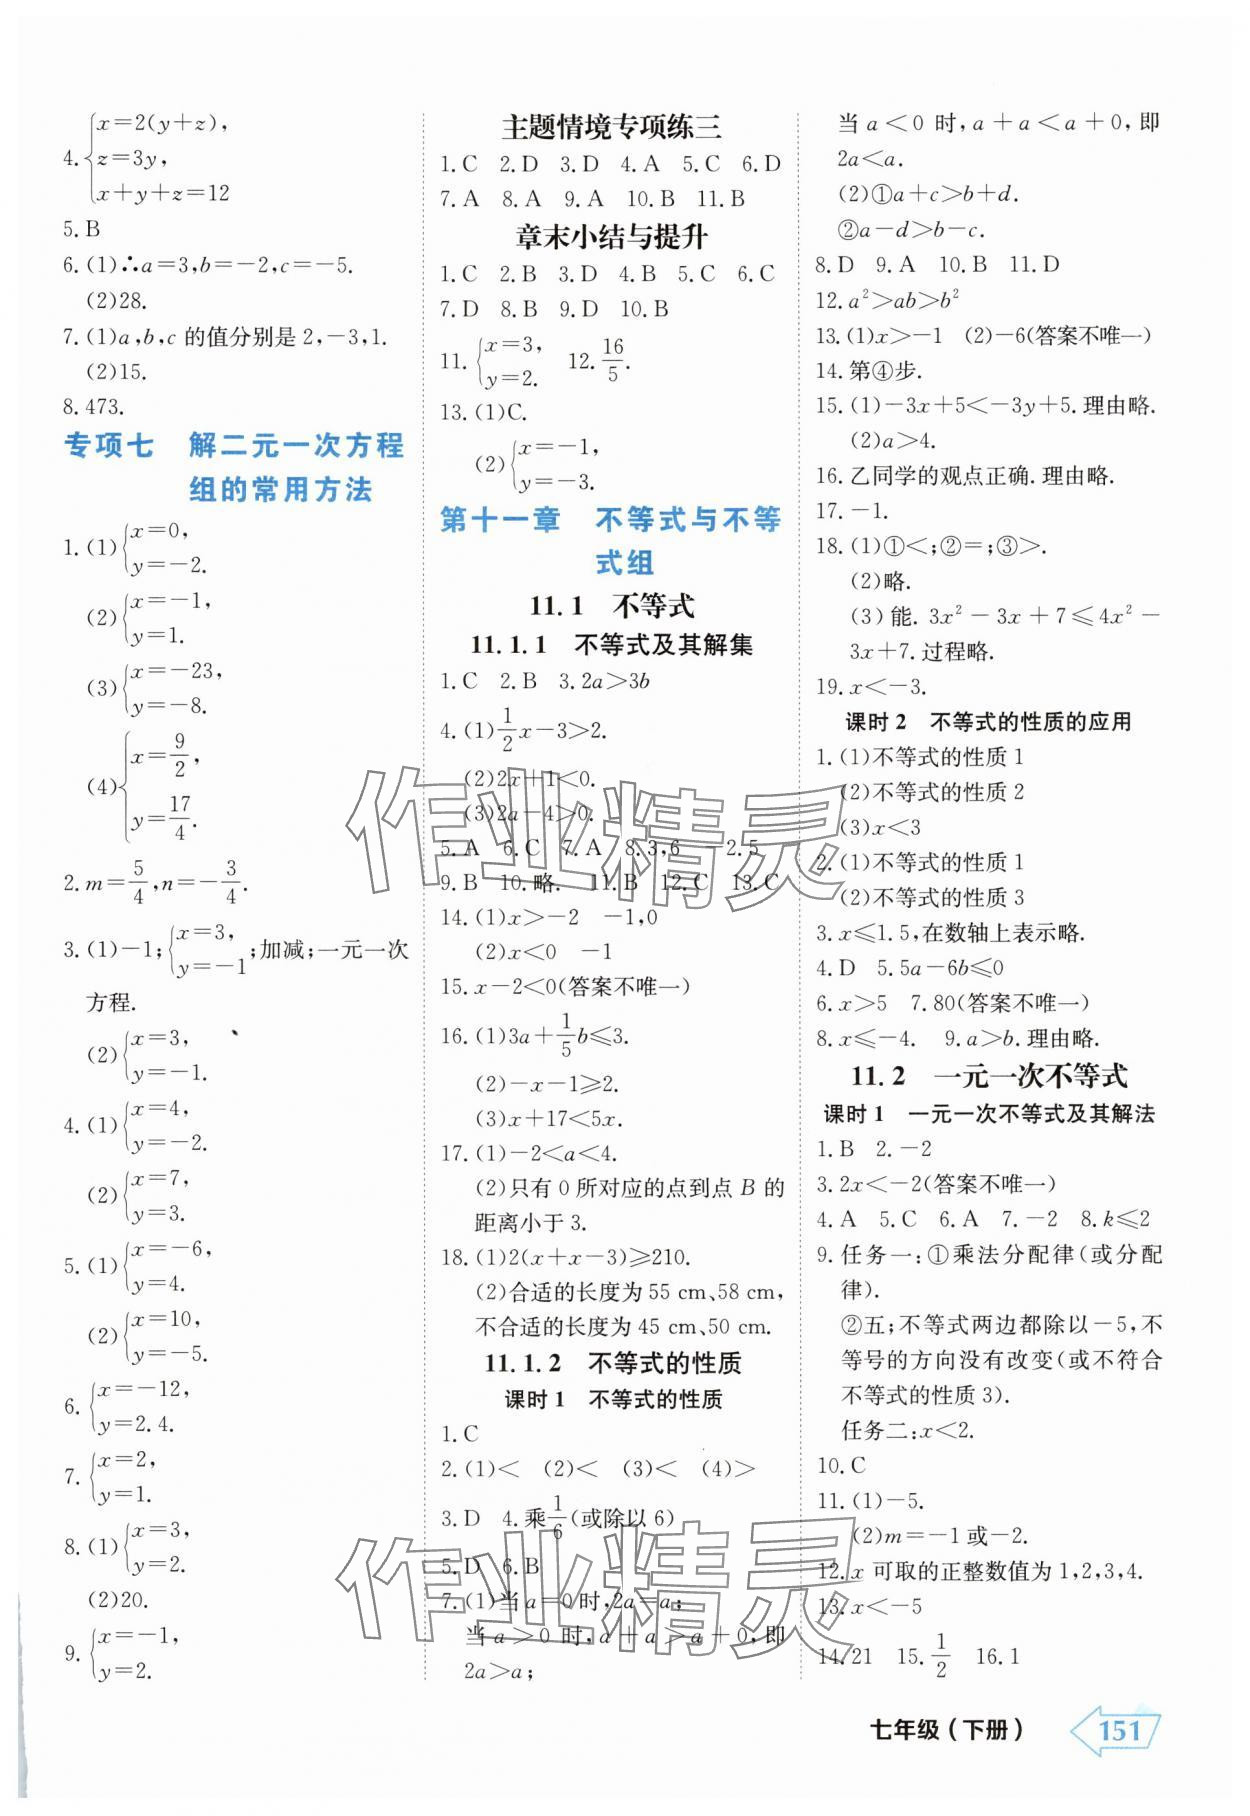 4.{x=2(y+z),
z=3y,
x+y+z=12
5. B
6. (1)∴a=3,b=-2,c=-5.
(2)28.
7. (1)a,b,c 的值分别是 2,-3,1.
(2)15.
8. 473.
专项七 解二元一次方程
组的常用方法
1. (1){x=0,
y=-2.
(2){x=-1,
y=1.
(3){x=-23,
y=-8.
(4){x=9/2,
y=17/4.
2. m=5/4,n=-3/4.
3. (1)-1;{x=3,
y=-1;加减;一元一次
方程.
(2){x=3,
y=-1.
4. (1){x=4,
y=-2.
(2){x=7,
y=3.
5. (1){x=-6,
y=4.
(2){x=10,
y=-5.
6. {x=-12,
y=2.4.
7. {x=2,
y=1.
8. (1){x=3,
y=2.
(2)20.
9. {x=-1,
y=2.
主题情境专项练三
1. C 2. D 3. D 4. A 5. C 6. D
7. A 8. A 9. A 10. B 11. B
章末小结与提升
1. C 2. B 3. D 4. B 5. C 6. C
7. D 8. B 9. D 10. B
11. {x=3,
y=2. 12. 16/5.
13. (1)C.
(2){x=-1,
y=-3.
第十一章 不等式与不等
式组
11.1 不等式
11.1.1 不等式及其解集
1. C 2. B 3. 2a>3b
4. (1)1/2x-3>2.
(2)2x+1<0.
(3)2a-4>0.
5. A 6. C 7. A 8. 3,6 -2.5
9. B 10. 略. 11. B 12. C 13. C
14. (1)x>-2 -1,0
(2)x<0 -1
15. x-2<0(答案不唯一)
16. (1)3a+1/5b≤3.
(2)-x-1≥2.
(3)x+17<5x.
17. (1)-2<a<4.
(2)只有 0 所对应的点到点 B 的
距离小于 3.
18. (1)2(x+x-3)≥210.
(2)合适的长度为 55 cm、58 cm,
不合适的长度为 45 cm、50 cm.
11.1.2 不等式的性质
课时1 不等式的性质
1. C
2. (1)< (2)< (3)< (4)>
3. D 4. 乘1/6(或除以 6)
5. D 6. B
7. (1)当 a=0时,2a=a;
当 a>0 时,a+a>a+0,即
2a>a;
当 a<0 时,a+a<a+0,即
2a<a.
(2)①a+c>b+d.
②a-d>b-c.
8. D 9. A 10. B 11. D
12. a²>ab>b²
13. (1)x>-1 (2)-6(答案不唯一)
14. 第④步.
15. (1)-3x+5<-3y+5. 理由略.
(2)a>4.
16. 乙同学的观点正确. 理由略.
17. -1.
18. (1)①<;②=;③>.
(2)略.
(3)能. 3x²-3x+7≤4x²-
3x+7. 过程略.
19. x<-3.
课时2 不等式的性质的应用
1. (1)不等式的性质 1
(2)不等式的性质 2
(3)x<3
2. (1)不等式的性质 1
(2)不等式的性质 3
3. x≤1.5,在数轴上表示略.
4. D 5. 5a-6b≤0
6. x>5 7. 80(答案不唯一)
8. x≤-4. 9. a>b. 理由略.
11.2 一元一次不等式
课时1 一元一次不等式及其解法
1. B 2. -2
3. 2x<-2(答案不唯一)
4. A 5. C 6. A 7. -2 8. k≤2
9. 任务一:①乘法分配律(或分配
律).
②五;不等式两边都除以-5,不
等号的方向没有改变(或不符合
不等式的性质 3).
任务二:x<2.
10. C
11. (1)-5.
(2)m=-1 或-2.
12. x 可取的正整数值为 1,2,3,4.
13. x<-5
14. 21 15. 1/2 16. 1
作业精灵
作业精灵
七年级(下册) 151